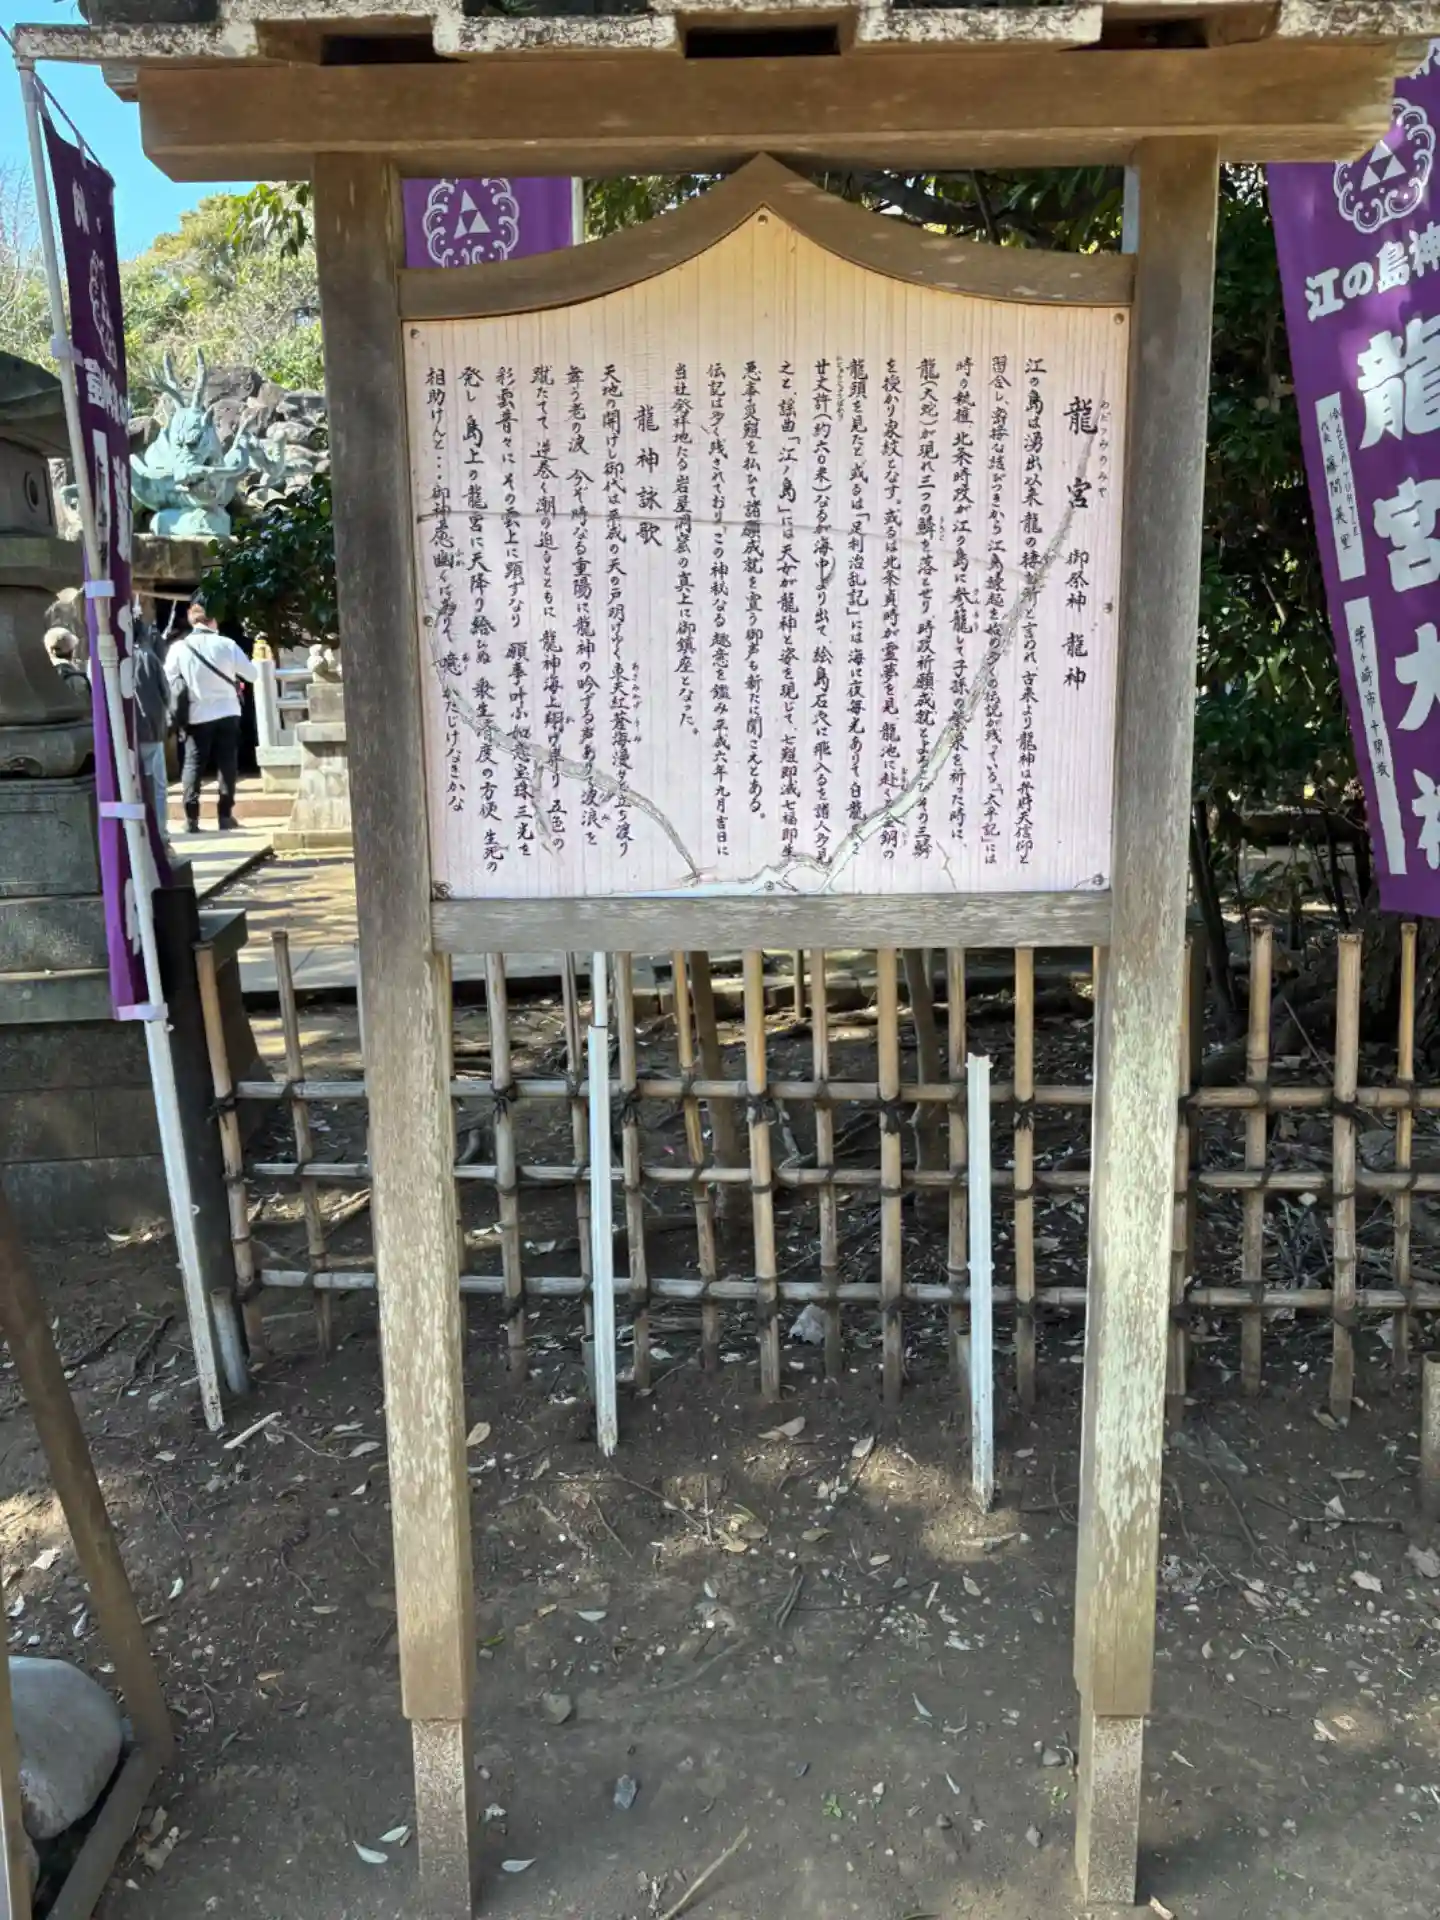 龍宮 御祭神 龍神
わだつみのみや
江の島は湧出以来龍の棲む所と言われ、古来より龍神は弁財天信仰と
習合し、密接な結びつきから江島縁起を始め多くの伝説が残っている。「太平記」には
時の執権、北条時政が江の島に参籠して子孫の繁栄を祈った時に、
龍(大蛇)が現れ三つの鱗を落とせり時政祈願成就とよろこびその三鱗
を授かり家紋となす。或るは北条貞時が霊夢を見、龍池に赴くと金銅の
龍頭を見たと或るは「足利治乱記」には海に夜毎光ありて白龍長さ
廿丈許(約六〇米)なるが海中より出て、絵島石穴に飛入るを諸人多見
之と、謡曲「江ノ島」には天女が龍神と姿を現じて、七難即滅七福即生
悪事災難を払いて諸願成就を宣う御声も新たに聞こえとある。
伝記は多く残されており、この神秘なる趣意を鑑み平成六年九月吉日に
当社発祥地たる岩屋洞窟の真上に御鎮座となった。
龍神詠歌
天地の開けし御代は平成の天の戸明けゆく東天紅蒼海漫々と立ち渡り
舞う老の波 今ぞ時なる重陽に龍神の吟ずる声ありて波浪を
蹴たてて 逆巻く潮の迫るとともに 龍神海上翔け昇り 五色の
彩雲普々に その雲上に顕ずなり 願事叶ふ如意宝珠 三光を
発し 島上の龍宮に天降り給ひぬ 衆生済度の方便 生死の
相助けんと・・・御神慮幽くにありて 噫 かたじけなきかな
江の島神
龍宮大神
代表 藤間 英里
茅ヶ崎市 十間坂